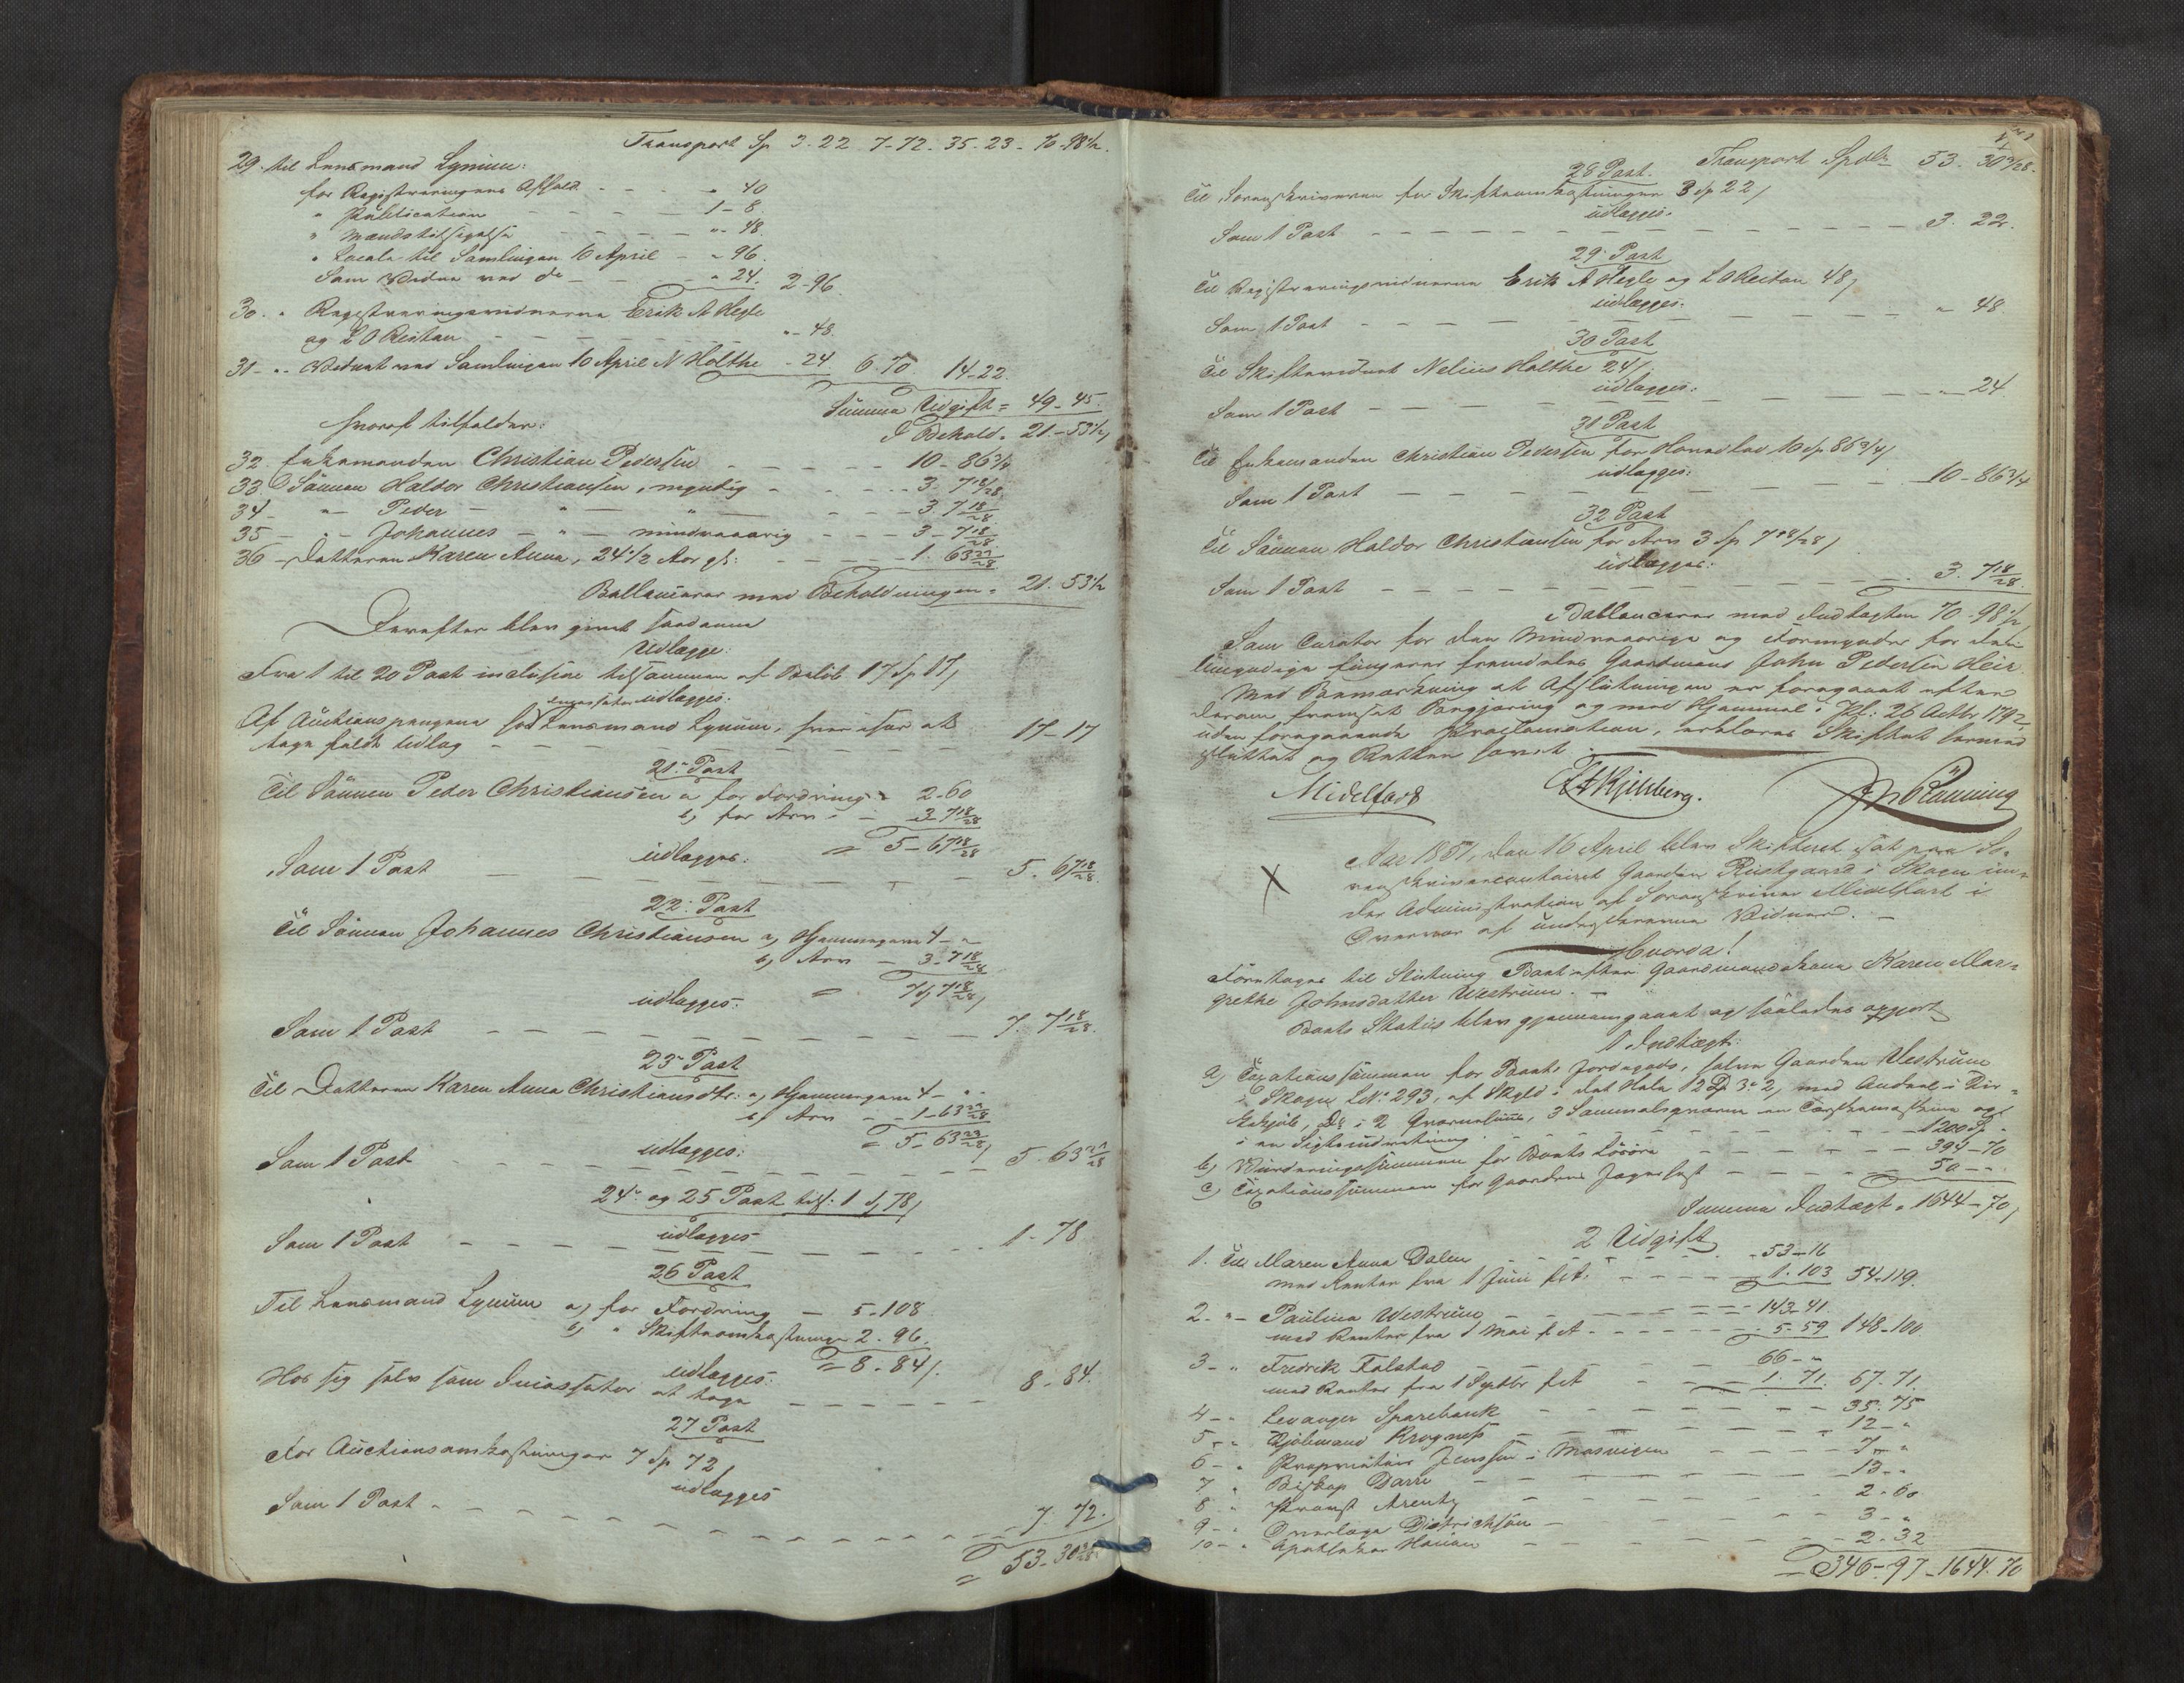 Transport Sp 3-22 7-72-35-23-70-98½.
29. til Lensmand Lynum:
for Registreringens Afhold - - - " 40
" Publication - - - - 1-8.
" Mandstilsigelse - - - - "-48.
" Locale til Samlingen 16 April - " 96.
Som Vidne ved do - - - " 24. 2-96.
30. " Registreringsvidnerne Erik A Hegle
og L O Reitan - - - - "-48.
31-"- Vidnet ved Samlingen 16 April N Holthe - 24 6.70. 14-22.
Summa Udgift = 49-45.
hvoraf tilfalder: I Behold = 21-53½,
32. Enkemanden Christian Pedersen - - - - - 10-86¾
33 Sønnen Haldor Christiansen, myndig - - - - 3. 7 18/28
34 - "- Peder - "- "- - - - 3. 7 18/28
35 - "- Johannes - "- mindreaarig - - - 3-7 18/28
36 - Datteren Karen Anna, 24½ Aar gl: - - - 1. 63 23/28
Ballancerer med Beholdningen = 21. 53½
Derefter blev givet saadanne
Udlægge:
Fra 1 til 20 Post inclusive tilsammen et Beløb 17 Sp 17,
udlægges:
Af Auctionspengene hos Lensmand Lynum, hver især at
tage fuldt Udlag - - - - - - - 17-17
21. Post
Til Sønnen Peder Christiansen a, for Fordring = 2-60
b, for Arv - - 3-7 18/28
= 5-67 18/28
udlægges:
Som 1 Post - - - - - - - 5. 67 18/28.
22. Post
Til Sønnen Johannes Christiansen a, Hjemmegave 4-"
b, Arv - 3-7 18/28
= 7 Sp 7 18/28,
udlægges:
Som 1 Post - - - - - - - 7. 7 18/28.
23. Post
Til Datteren Karen Anna Christiansdtr: a, Hjemmegave 4-"
b, Arv - - 1-63 23/28
= 5-63 23/28,
udlægges:
Som 1 Post - - - - - - - 5. 63 23/28
24. og 25 Post tils: 1 Sp 78,
udlægges
Som 1 Post - - - - - - - 1-78
26 Post
Til Lensmand Lynum a, for Fordring - 5-108
b, " Skifteomkostninger 2. 96.
= 8-84/.
udlægges:
Hos sig selv som Incassator at tage - - - - - 8-84.
27 Post
For Auctionsomkostninger 7 Sp 72,
udlægges
Som 1 Post - - - - - - - 7. 72.
= 53-30 9/28
Transport Spdlr 53-30 9/28.
28 Post.
Til Sorenskriveren for Skifteomkostninger 3 Sp 22,
udlægges:
Som 1 Post - - - - - - - 3. 22.
29. Post
Til Registreringsvidnerne Erik A Hegle og L O Reitan 48,
udlægges:
Som 1 Post - - - - - - - " 48.
30 Post
Til Skiftevidnet Nelius Holthe 24,
udlægges:
Som 1 Post - - - - - - - "-24
31 Post
Til Enkemanden Christian Pedersen for Hovedlod 10 Sp 86¾,
udlægges:
Som 1 Post - - - - - - - 10-86¾
32 Post
Til Sønnen Haldor Christiansen for Arv 3 Sp 7 18/28,
udlægges:
Som 1 Post - - - - - - - 3. 7 18/28.
Ballancerer med Indtægten 70-98½,
Som Curator for den Mindreaarige og Formynder for den
Umyndige fungerer fremdeles Gaardmand John Pedersen Heir.
Med Bemærkning at Afslutningen er foregaaet efter
derom fremsat Begjæring og med Hjemmel i Pl: 26 Octbr 1792,
uden foregaaende Proclamation, erklæres Skiftet hermed
sluttet og Retten hævet.
Midelfart
X Aar 1851, den 16 April blev Skifteret sat paa So-
renskrivercontoiret Gaarden Rustgaard i Skogn un-
der Administration af Sorenskriver Midelfart i
Overvær af undertegnede Vidner. -
Hvorda!
Foretages til Slutning Boet efter Gaardmandskone Karen Mar-
grethe Johnsdatter Westrum. -
Boets Status blev gjennemgaaet og saaledes opgjort
1 Indtægt:
a) Taxationssummen for Boets Jordegods, halve Gaarden Westrum
i Skogn L.No. 293, af Skyld i det Hele 12 D 3 " 2, med Andeel i
do i 2 Qværnehuse, 3 en Tærskemaskine og
i en Sigteindretning. - - - - - 1200 Sp "
b) Vurderingssummen for Boets Løsøre - - - - - 394-70
c) Taxationssummen for Gaardens - - - - - 50-".
Summa Indtægt = 1644-70,
2 Udgift
1. Til Maren Anna Dalen - - - 53-16
med Renter fra 1 Juni f.A. - - - 1-103 54-119.
2. "- Pauline Westrum - - - 143-41
med Renter fra 1 Mai f A - - - 5-59 148-100
3-" Fredrik Falstad - - - 66-"
med Renter fra 1 Septbr f A - - - 1. 71. 67-71.
4-" Levanger Sparebank - - - - - 35-75
5-" Kjøbmand Krognæs - - - - - 12-"
6-" Proprietair Jenssen i Mosvigen - - - 7-"
7 " Biskop Darre - - - - - 13-"
8 " Provst Arentz - - - - - 2-60
9-" Overlæge Dietrichson - - - - - 3-"
10-" Apotheker - - - - - 2-32
= 346-97-1644-70